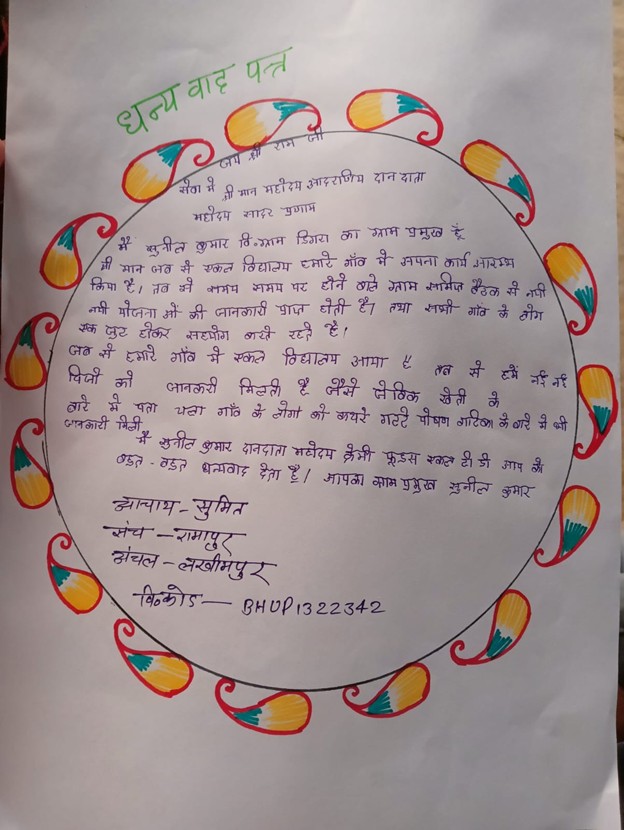 धन्य वाद पत्र
जय श्री राम जी
सेवा मे श्री मान महोदय आदरणिय दान दाता
महोदय सादर प्रणाम
मैं सुनील कुमार वि. ग्राम डिगरा का ग्राम प्रमुख हूँ
श्री मान जब से एकल विद्यालय हमारे गाँव में अपना कार्य आरम्भ
किया है। तब से समय समय पर होने वाले ग्राम समिति बैठक से नयी
नयी योजनाओं की जानकारी प्राप्त होती है। तथा सभी गाँव के लोग
एक जुट होकर सहयोग करते रहते है।
जब से हमारे गाँव में एकल विद्यालय आया है तब से हमें नई नई
चिजो को जानकारी मिलती है जैसे जैविक खेती के
बारे मे पता चला गाँव के लोगो को कचरे गढ्ढे पोषण वाटिका के बारे में भी
जानकारी मिली
मैं सुनील कुमार दानदाता महोदय प्रेमी फूडस एकल टी जी आप को
बहुत - बहुत धन्यवाद देता हूँ। आपका ग्राम प्रमुख सुनील कुमार
आचार्य - सुमित
संच - रामापुर
अंचल - लखीमपुर
वि. कोड - BHUP1322342